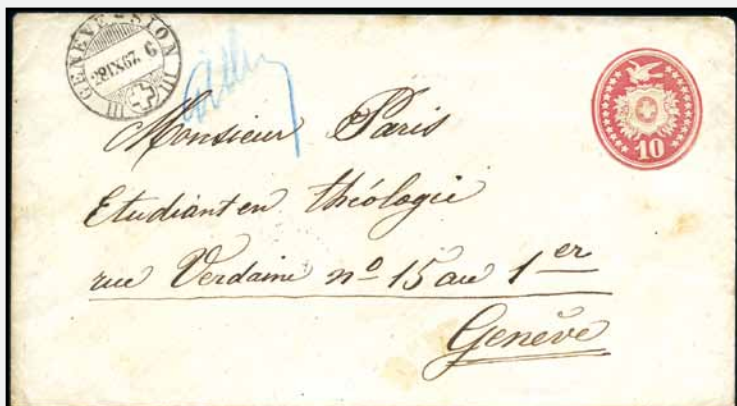 GENEVE-SION III
28 IX 67 6
III
10
Monsieur Paris
Etudiant en théologie
rue Verdaine nº 15 au 1er
Genève